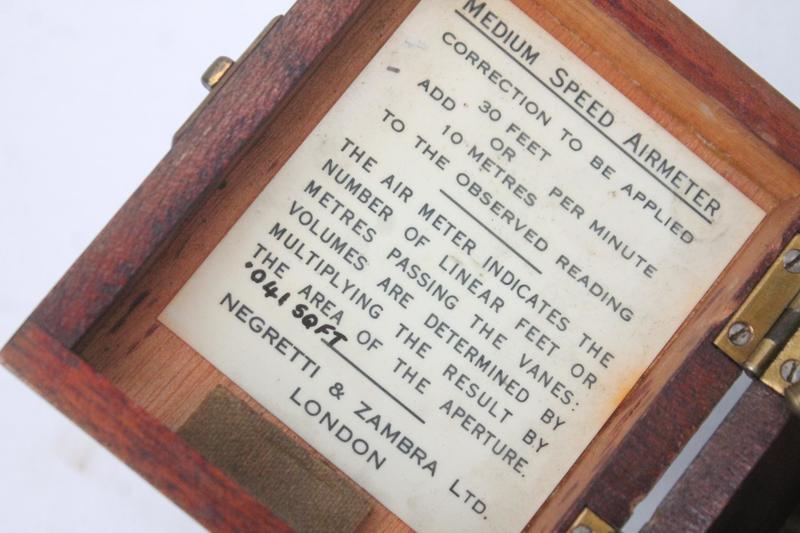 MEDIUM SPEED AIRMETER
CORRECTION TO BE APPLIED
ADD 30 FEET OR 10 METRES PER MINUTE
TO THE OBSERVED READING
THE AIR METER INDICATES THE
NUMBER OF LINEAR FEET OR
METRES PASSING THE VANES:
VOLUMES ARE DETERMINED BY
MULTIPLYING THE RESULT BY
THE AREA OF THE APERTURE.
.041 SQFT
NEGRETTI & ZAMBRA LTD.
LONDON